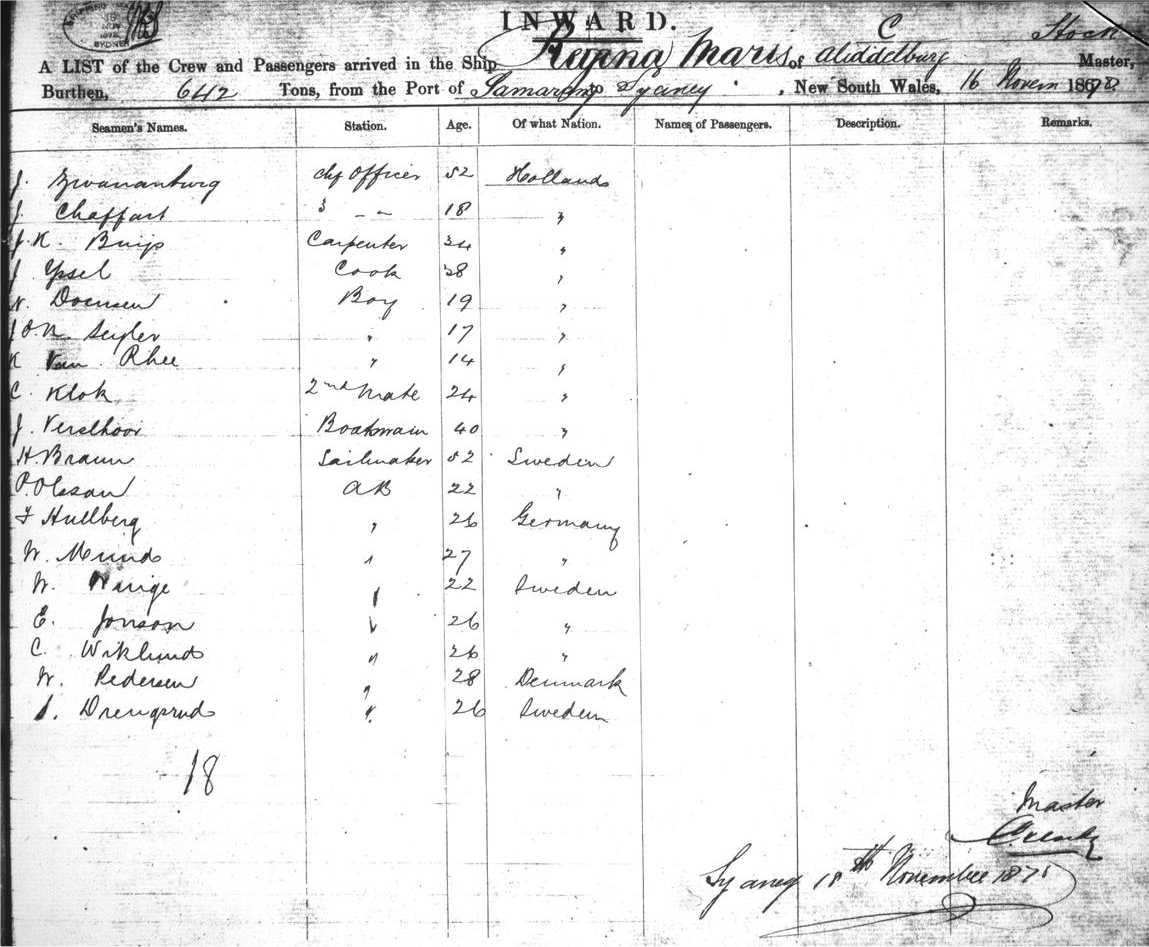 SYDNEY
INWARD.
A LIST of the Crew and Passengers arrived in the Ship Regina Maris of Middelburg C Stock Master,
Burthen, 642 Tons, from the Port of Samarang to Sydney, New South Wales, 16 Novem 187
Seamen's Names. Station. Age. Of what Nation. Names of Passengers. Description. Remarks.
J. Zwananburg Chf Officer 52 Holland
J. Chaffart 3 — 18 "
J. K. Buijs Carpenter 34 "
J Ysel Cook 28 "
N. Doensen Boy 19 "
J O. N. Seijler " 17 "
K Van Rhee " 14 "
C. Klok 2nd Mate 24 "
J. Verelhoor Boatswain 40 "
H. Braun Sailmaker 52 Sweden
P. Olsson AB 22 "
F Hullberg " 26 Germany
W. Mund " 27 "
W. Wange " 22 Sweden
E. Jonson " 26 "
C. Wiklund " 26 "
W. Pedersen " 28 Denmark
Drengsrud " 26 Sweden
18
Master
Sydney 18th November 187